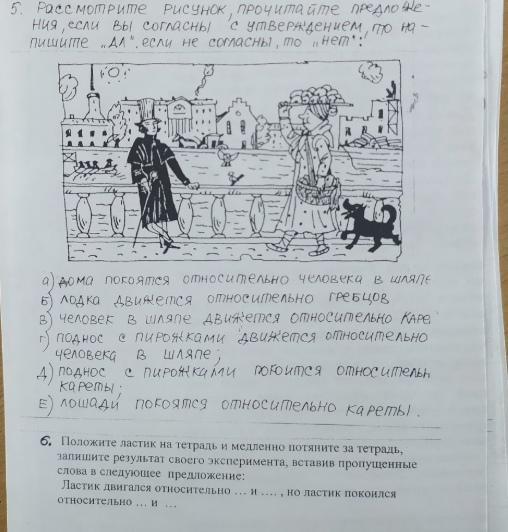 5. Рассмотрите рисунок, прочитайте предложе-
ния, если вы согласны с утверждением, то на-
пишите „ДА". если не согласны, то „нет":
а) дома покоятся относительно человека в шляпе
Б) лодка движется относительно гребцов
В) человек в шляпе движется относительно каре
Г) поднос с пирожками движется относительно
человека в шляпе;
Д) поднос с пирожками покоится относительн
кареты;
Е) лошади покоятся относительно кареты.
6. Положите ластик на тетрадь и медленно потяните за тетрадь,
запишите результат своего эксперимента, вставив пропущенные
слова в следующее предложение:
Ластик двигался относительно ... и ...., но ластик покоился
относительно ... и ...